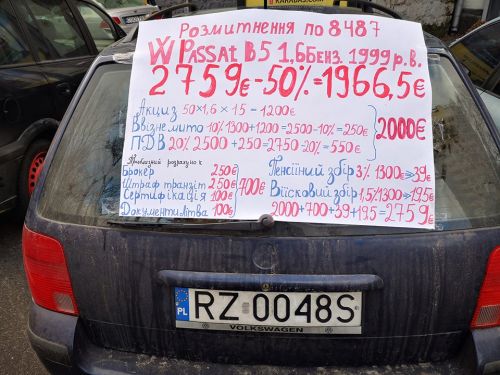 Розмитнення по 8487
W Passat B5 1,6 Бенз. 1999 р.в.
2759€-50%=1966,5€
Акциз 50×1,6×15-1200€
Ввізне мито 10% 1300+1200=2500-10%=250€
ПДВ 20% 2500+250=2750-20%=550€
2000€
Брокер 250€
Штраф транзіт 250€
Сертифікація 100€
Документи Літва 100€
700€
Пенсіиний збір 3% 1300€=39€
Війсковий збір 1,5% 1300=19,5€
2000+700+39+19,5=2759€
PL
RZ 0048S
VOLKSWAGEN